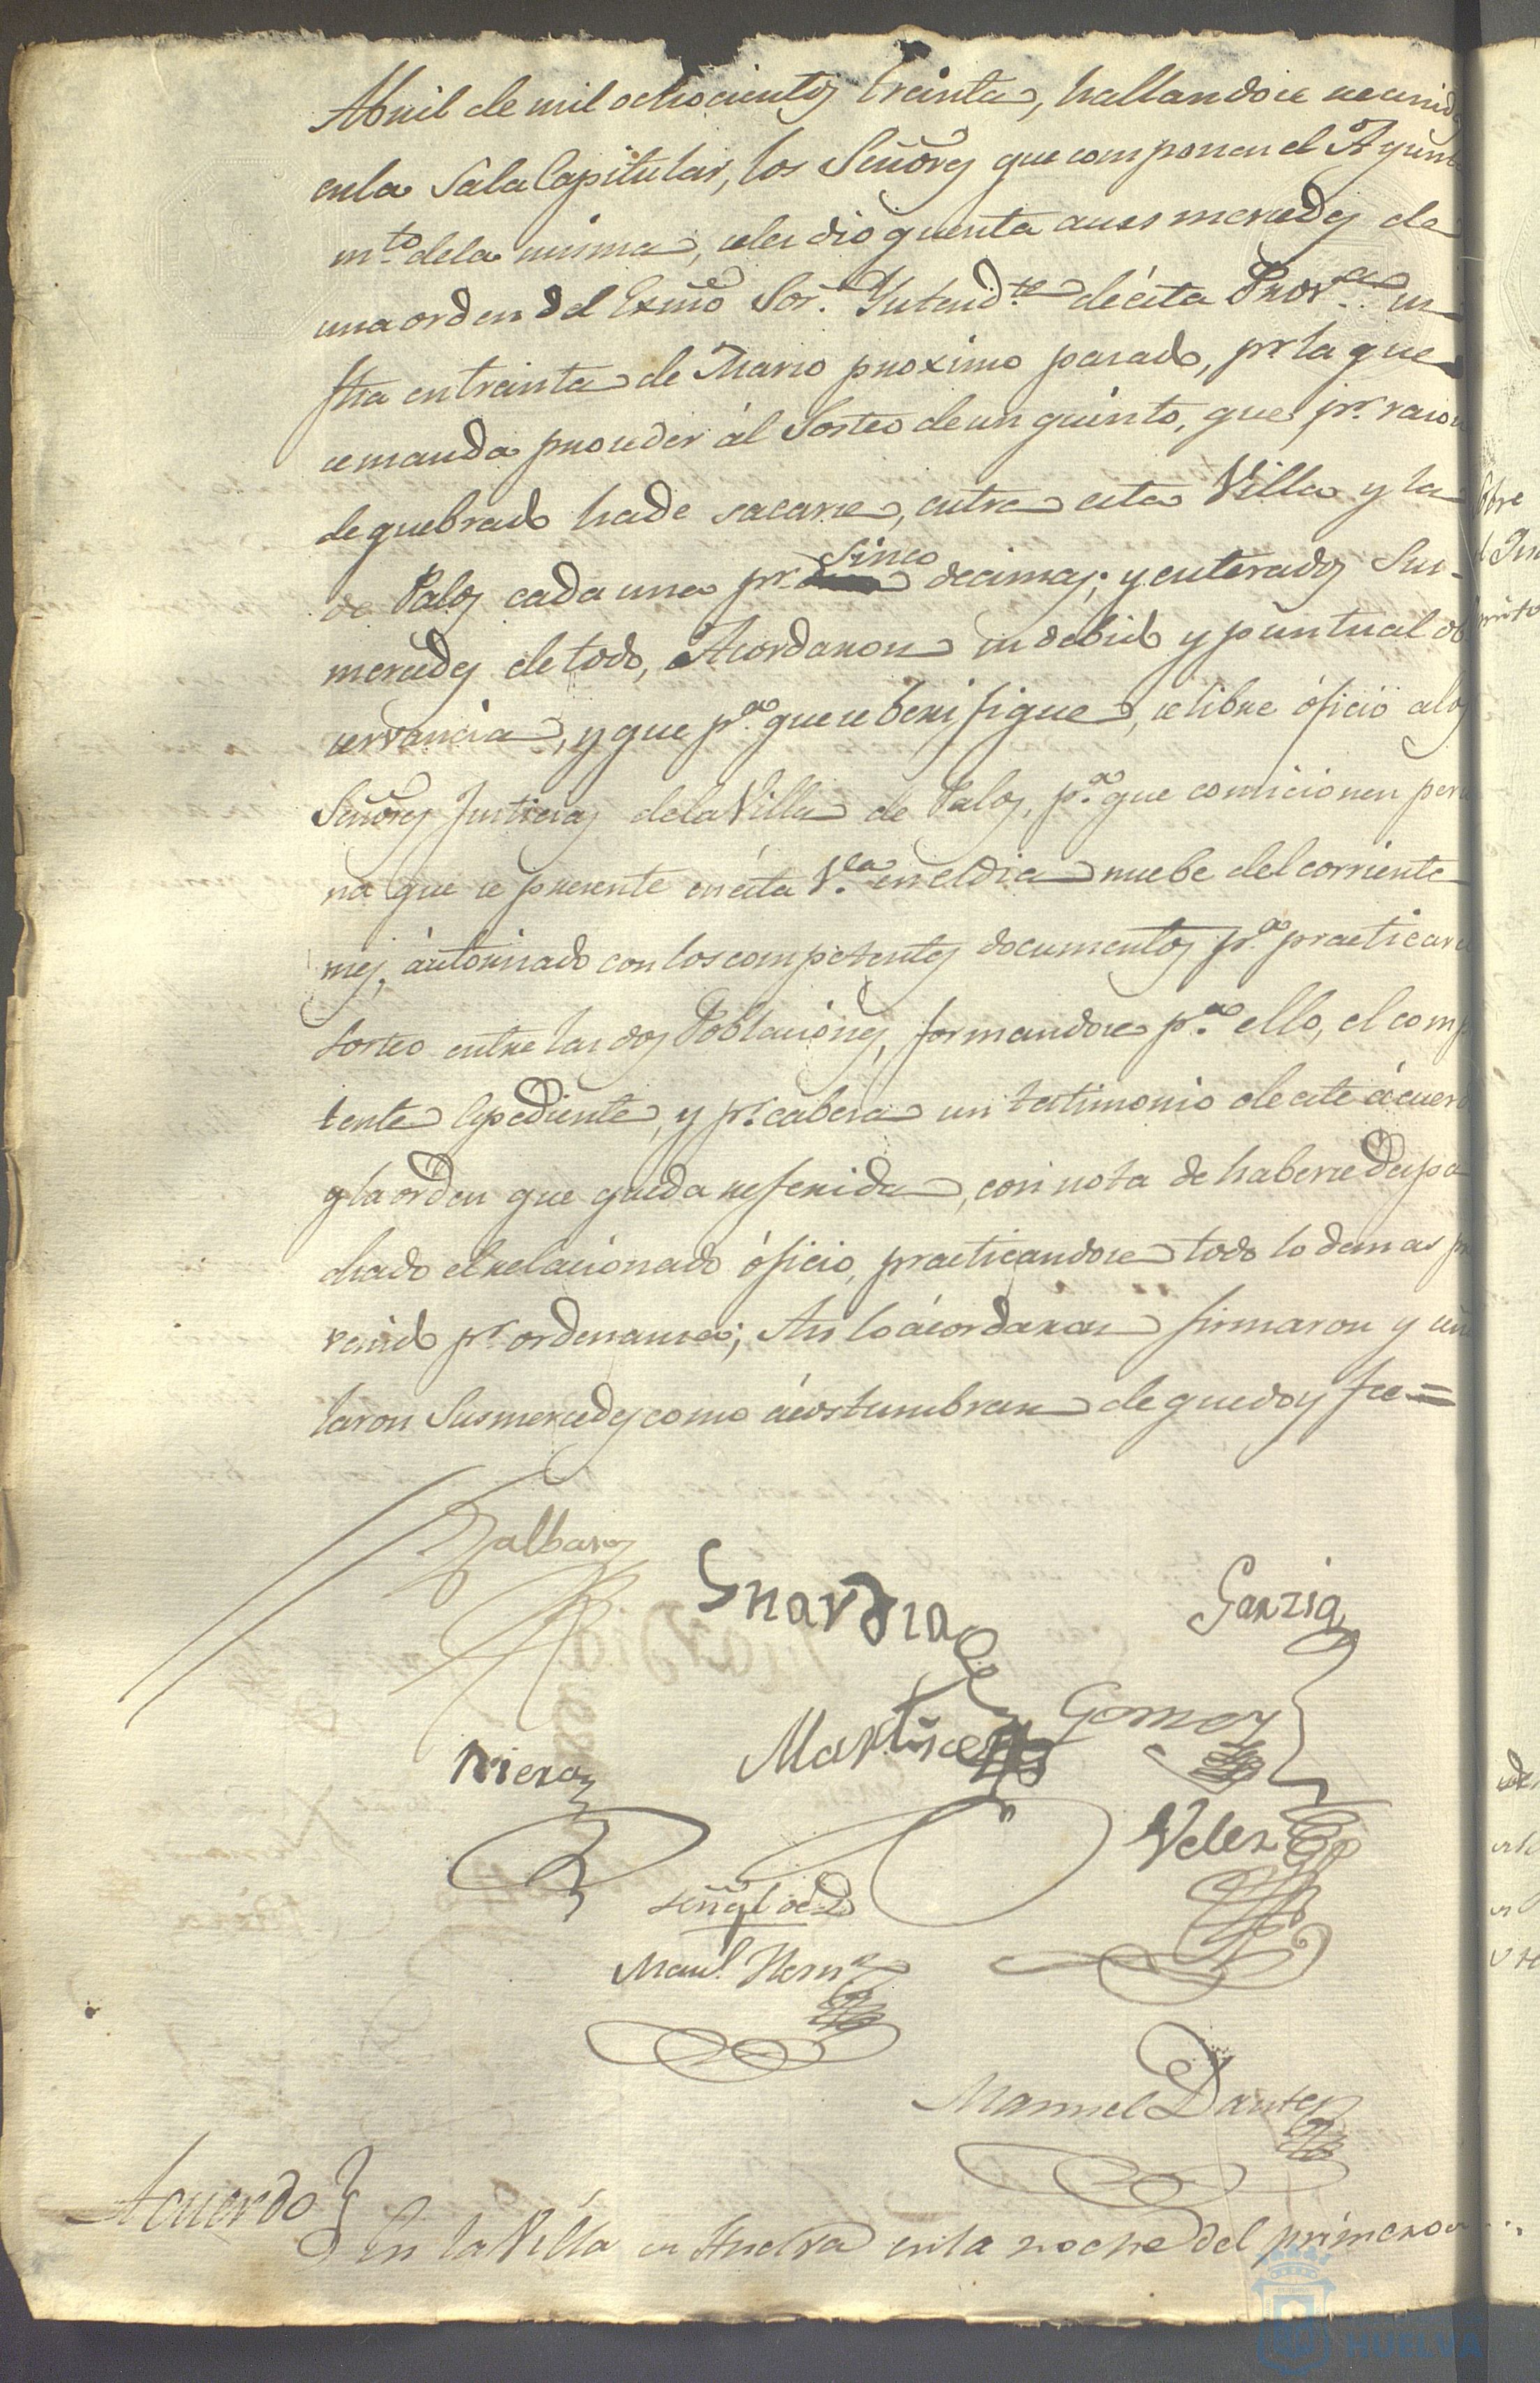 Abril de mil ochocientos treinta, hallandose reunid
en la Sala Capitular, los Señores que componen el Ayun
mto. de la misma, se les dio quenta a sus mercedes de
una orden del Exmo Sor. Yntendte. de ésta Prova. su
fha en treinta de Marzo proximo pasado, pr. la que
se manda proceder ál Sorteo de un quinto, que pr. razon
de quebrado ha de sacarse, entre esta Villa y la
de Palos cada una pr. Sinco decimas; y enterados Sus
mercedes de todo, Acordaron su debido y puntual ob
servancia, y que pa. que se berifique, se libre óficio a los
Señores Justicias de la Villa de Palos, pa. que comicionen perso
na que se presente en ésta Va. en el dia nuebe del corriente
mes, áutorisado con los competentes documentos pa. practicar el
sorteo entre las dos Poblaciónes, formandose pa. ello, el comp
tente Espediente, y pr. cabesa un testimonio de este ácuerd
y la orden que queda referida, con nota de haberse despa
chado el relaciónado óficio, practicandose todo lo demas pre
venido pr. ordenansa; Asi lo ácordaron firmaron y señ
laron Sus mercedes como ácostumbran de que doy fee=
Galbaros
Guardia
Garzia
Martinez
Gomez
Riera
Velez
señal de D
Manl. Hernz
Manuel Dantes
Acuerdo
En la Villa de Huelva en la noche del primero de
HUELVA